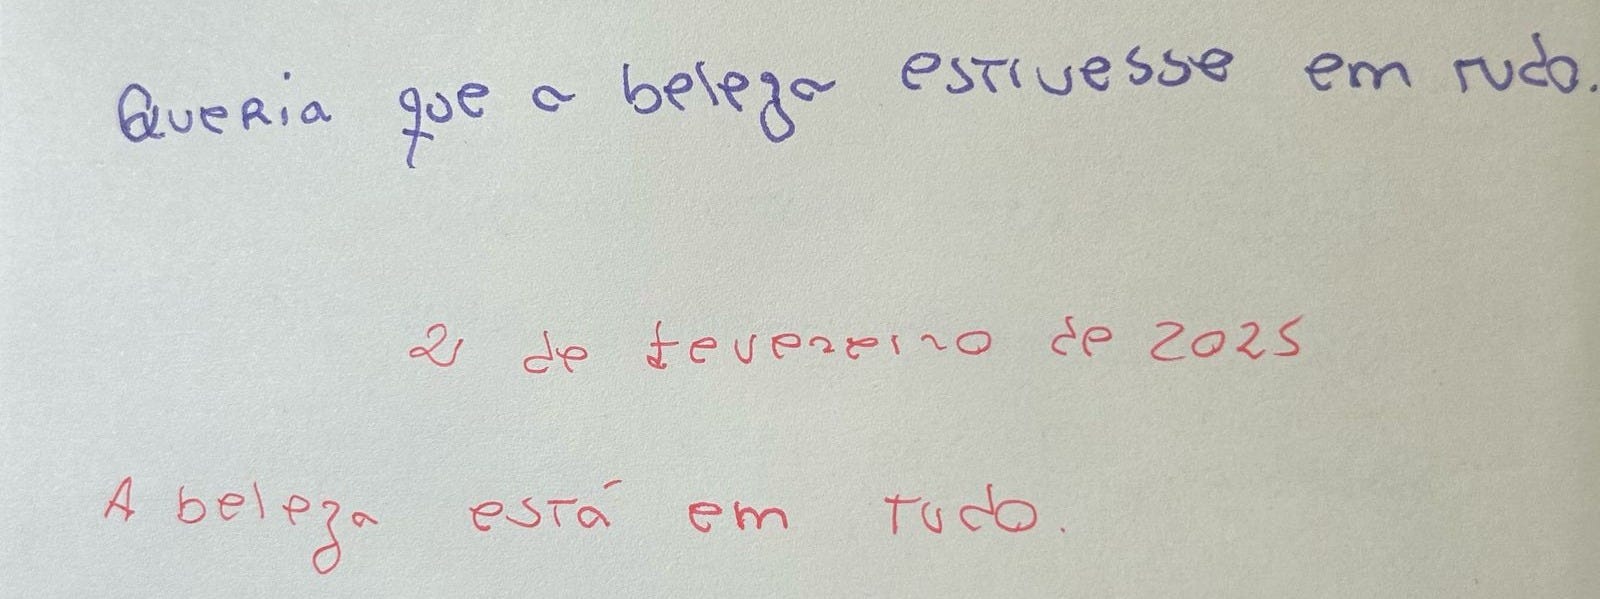 Queria que a beleza estivesse em tudo.
2 de fevereiro de 2025
A beleza está em tudo.